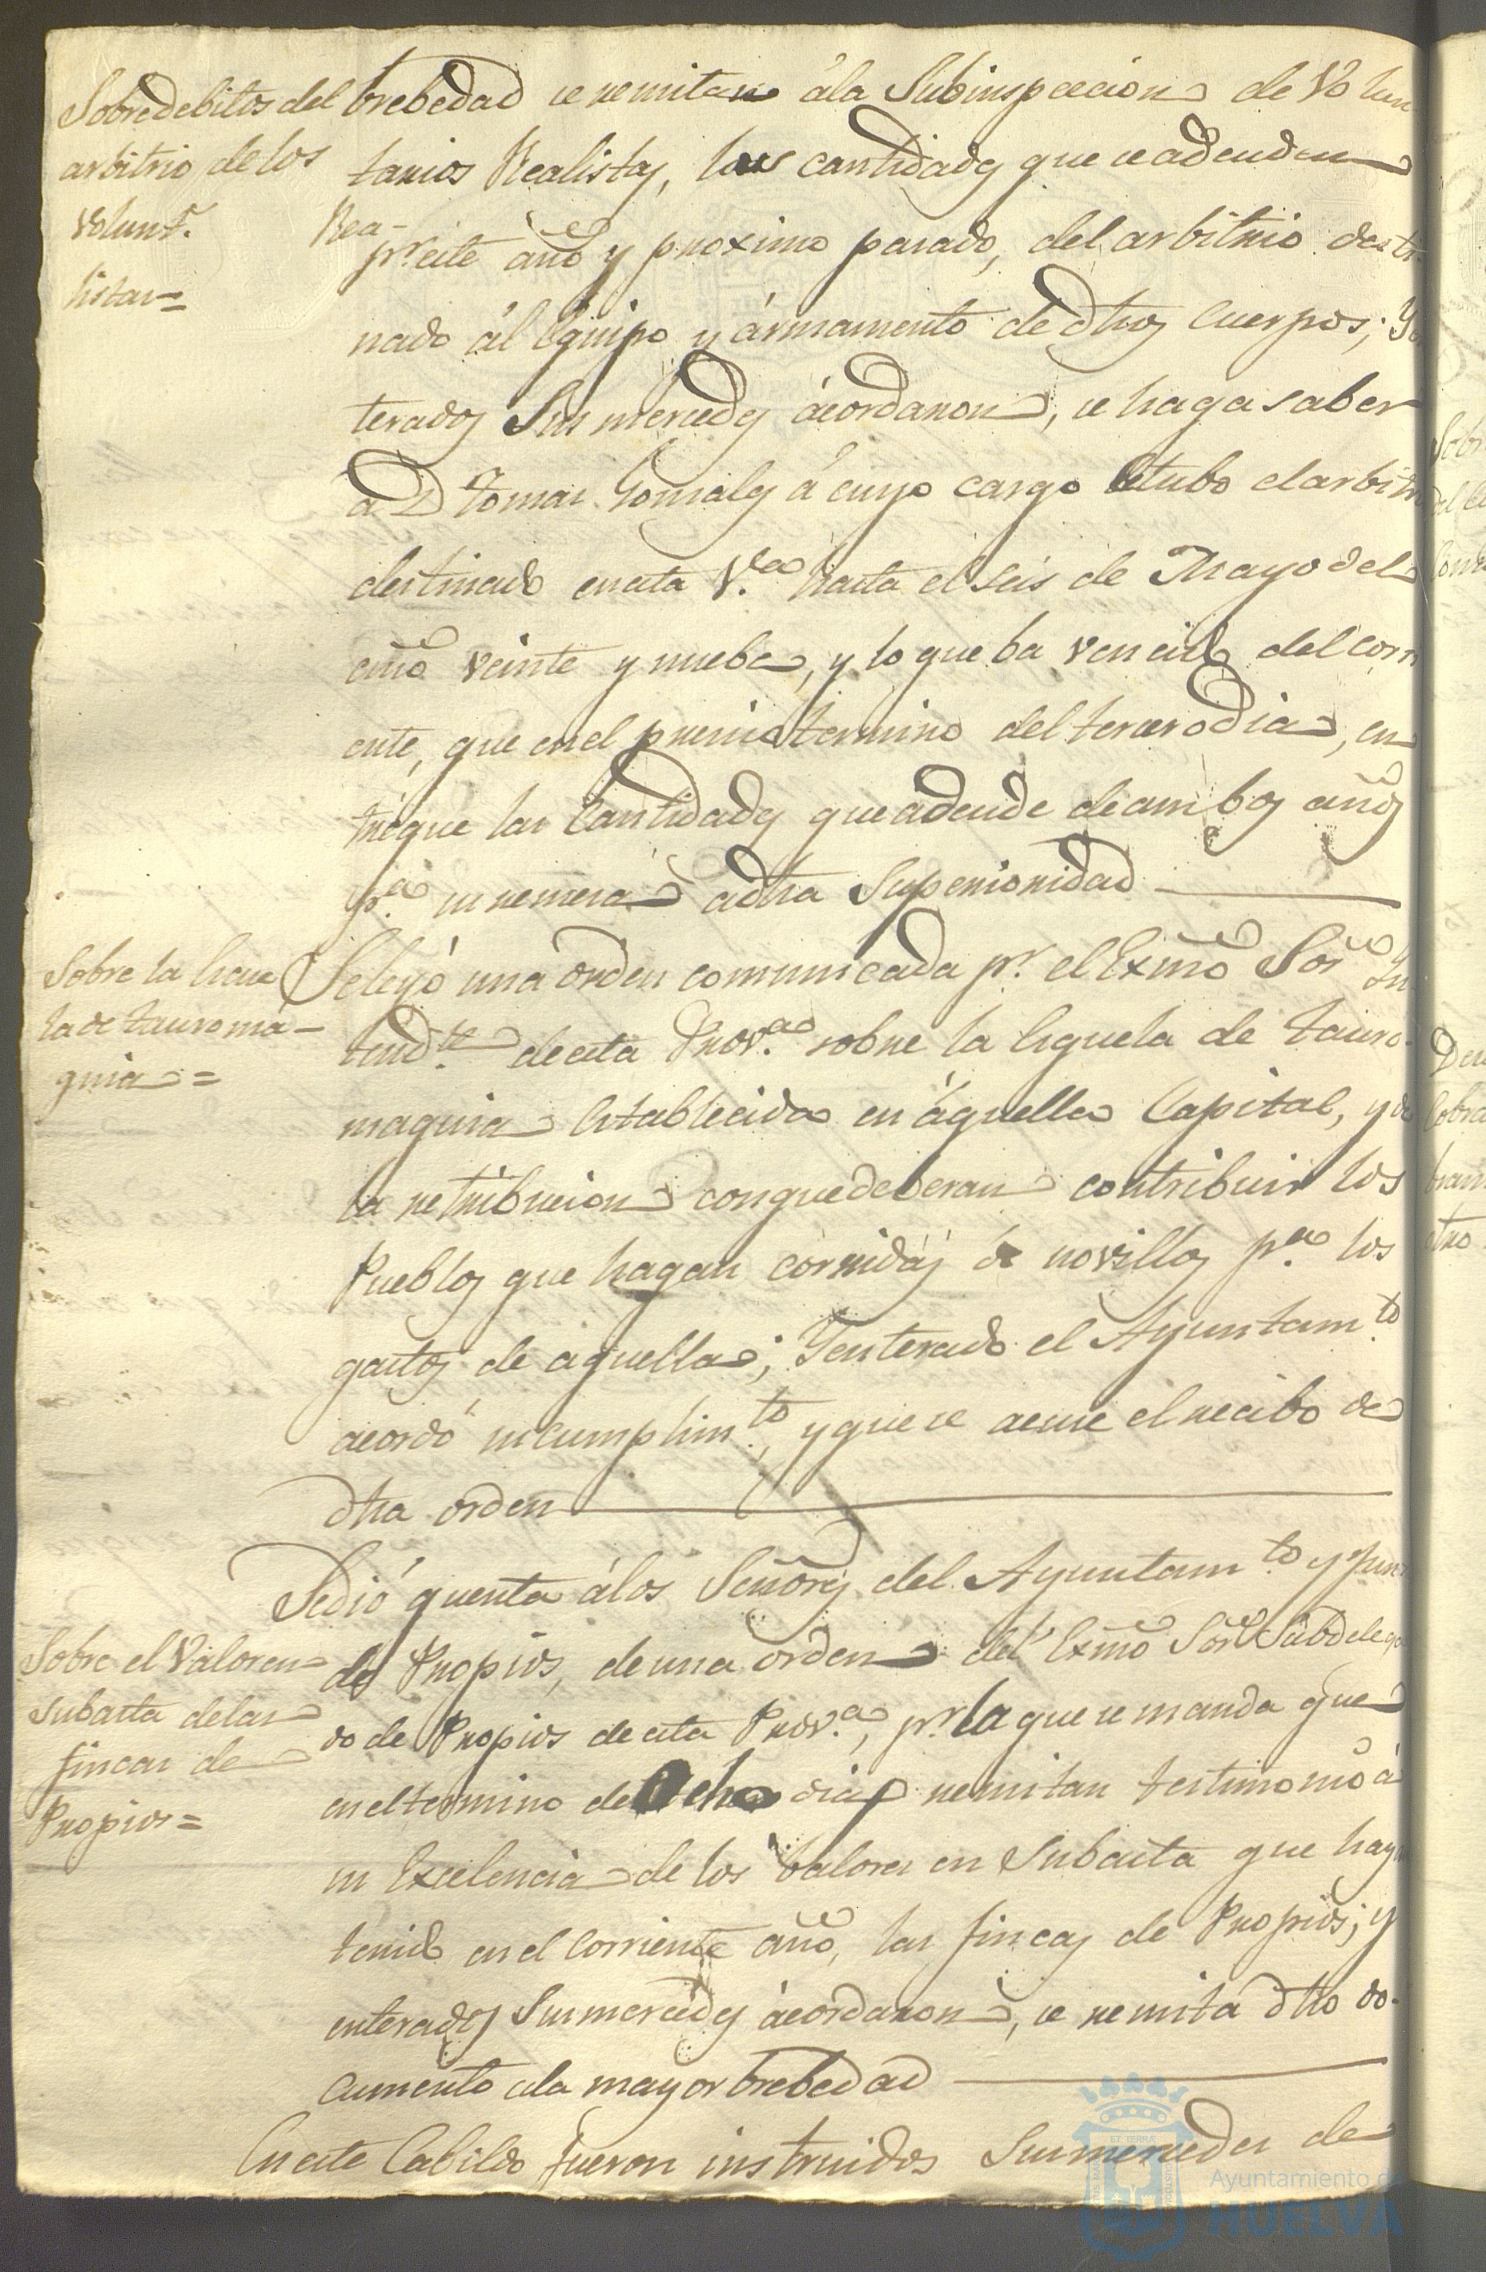 Sobre debitos del
arbitrio de los
volunt.s Rea-
listas=
brebedad se remitan á la Subinspeccion de Volun
tarios Realistas, las cantidades que se adeuden
pr. este año y proximo pasado, del arbitrio desti-
nado ál Equipo y ármamento de dhos Cuerpos; Y en
terados Sus mercedes ácordaron, se haga saber
a D Tomas Gonsales á cuyo cargo estubo el arbitrio
destinado en esta V.a hasta el seis de Mayo del
año veinte y nuebe, y lo que ba vencido del corri
ente, que en el preciso termino del tercero dia, en
tregue las Cantidades que adeude de ambos años
p.a su remesa a dha Superioridad
Sobre la Escue
la de tauroma-
quia=
Se leyó una orden comunicada pr. el Exmo Sor In
tend.te de esta Prov.a sobre la Esquela de tauro-
maquia Establecida en áquella Capital, y de
la retribucion con que deberan contribuir los
Pueblos que hagan corridas de novillos p.a los
gastos de aquella; Y enterado el Ayuntam.to
acordó su cumplim.to, y que se acuse el recibo de
dha orden
Sobre el Valor en
subasta de las
fincas de
Propios=
Se dió quenta á los Señores del Ayuntam.to y Junta
de Propios, de una orden del Exmo Sor Subdelega
do de Propios de esta Prov.a, pr. la que se manda que
en el termino de Ocho dias remitan testimonio á
su Excelencia de los balores en Subasta que hayn
tenido en el Corriente año, las fincas de Propios; y
enterados Sus mercedes ácordaron, se remita dho do-
cumento a la mayor brebedad
En este Cabildo fueron instruidos Sus mercedes de
Ayuntamiento de
HUELVA